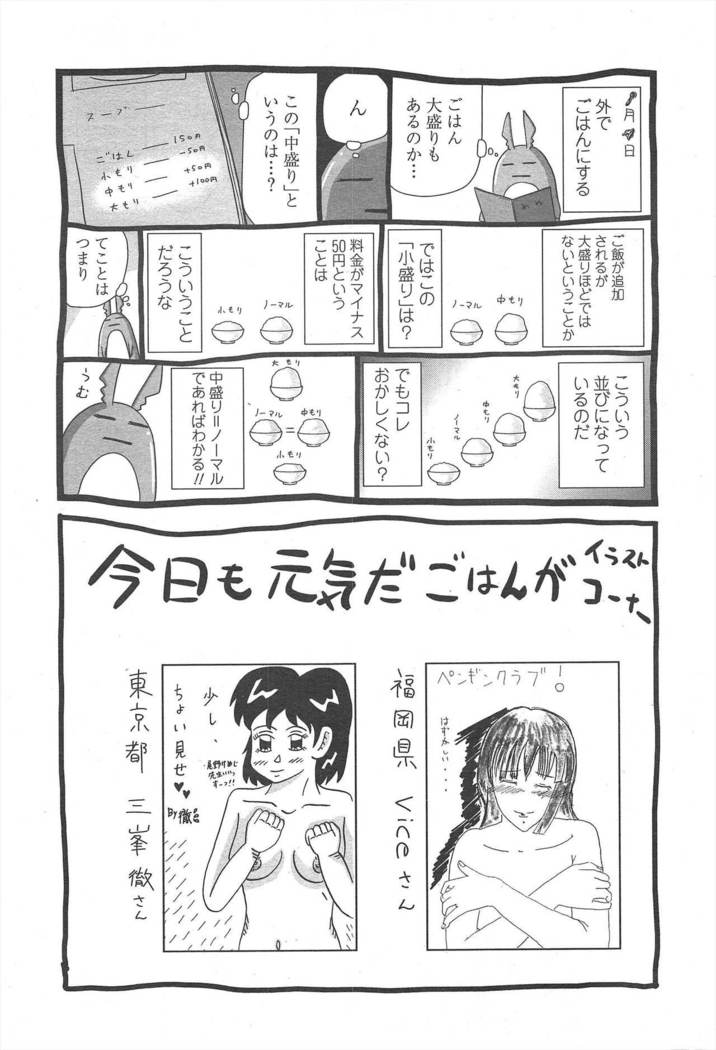 月 日
外で
ごはんにする
ごはん
大盛りも
あるのか…
ん
この「中盛り」と
いうのは…?
スープ
ごはん 150円
小もり -50円
中もり +50円
大もり +100円
ご飯が追加
されるが
大盛りほどでは
ないということか
中もり
ノーマル
ではこの
「小盛り」は?
料金がマイナス
50円という
ことは
ノーマル
小もり
こういうこと
だろうな
てことは
つまり
こういう
並びになって
いるのだ
大もり
中もり
ノーマル
小もり
でもコレ
おかしくない?
大もり
中もり
ノーマル
=
小もり
中盛り=ノーマル
であればわかる!!
うむ
今日も元気だごはんが
イラスト
コーナー
ペンギンクラブ!
はずかしい...
福岡県 Viceさん
少し、
ちょい見せ♥♥
先生いいっ
すーっ!!
By徹
東京都 三峯徹さん